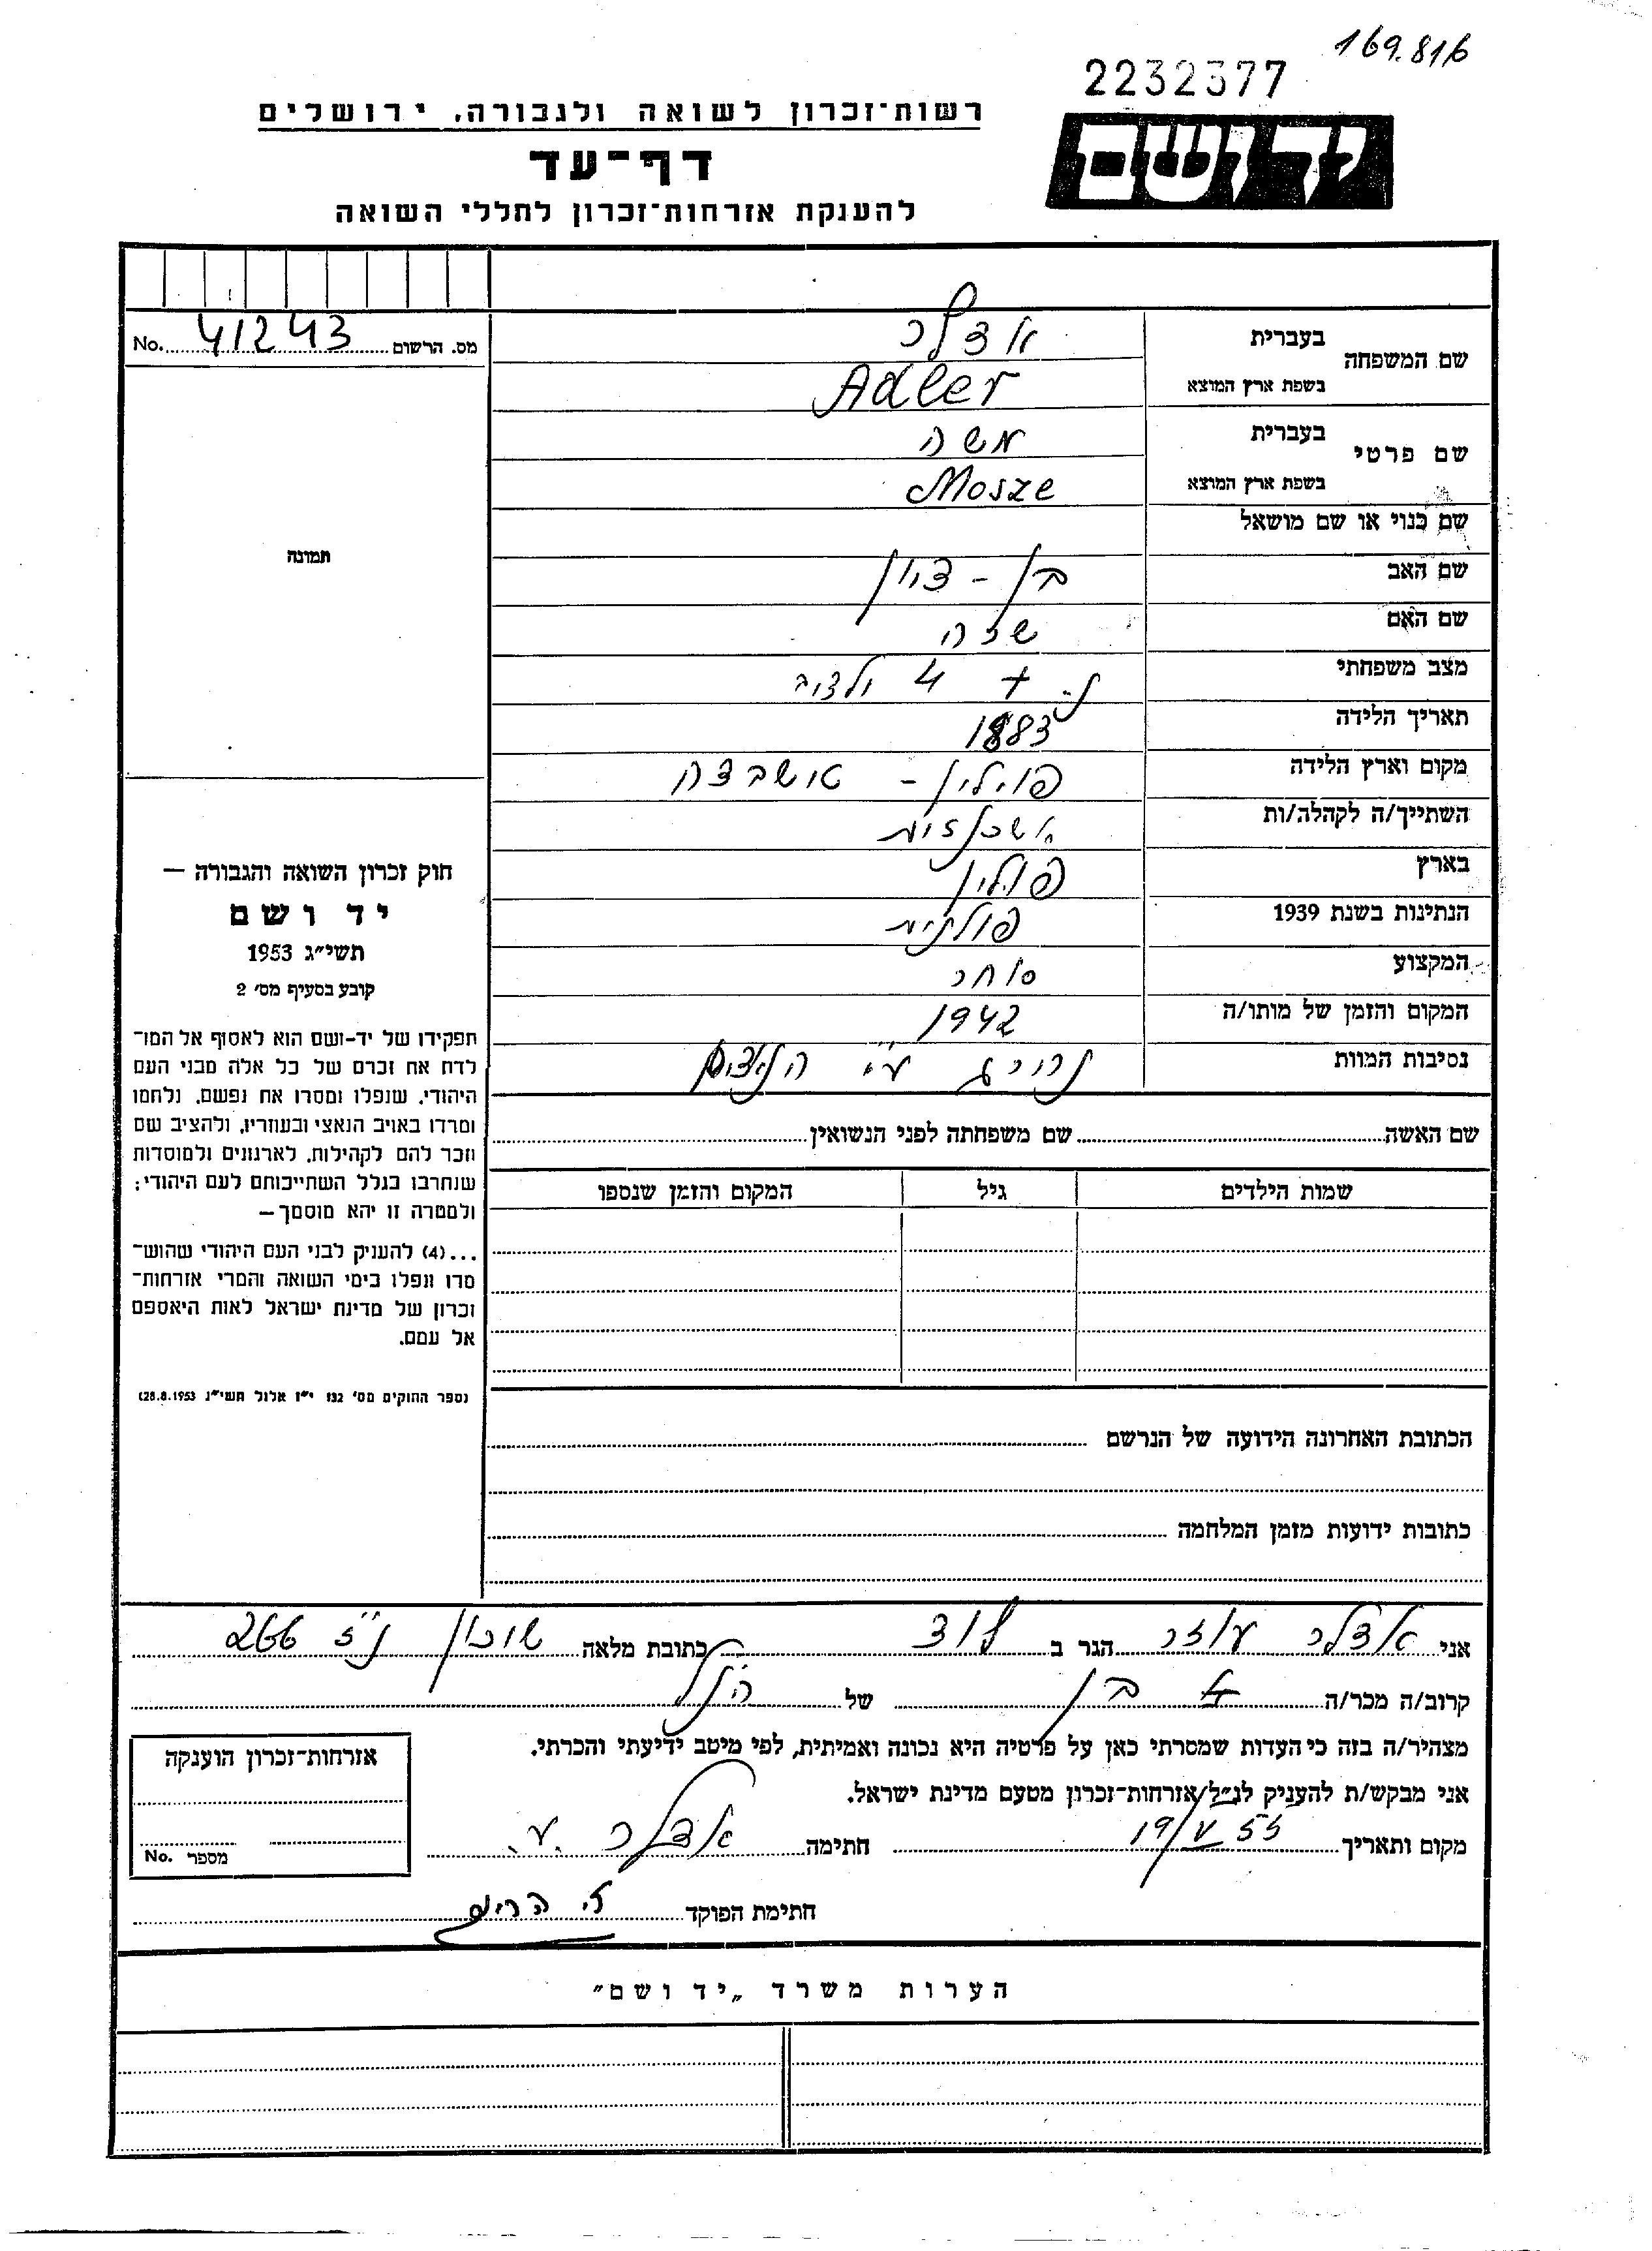 169.816
2232377
יד ושם
רשות־זכרון לשואה ולגבורה, ירושלים
דף־עד
להענקת אזרחות־זכרון לחללי השואה
מס. הרשום 41243 No.
תמונה
חוק זכרון השואה והגבורה —
יד ושם
תשי״ג 1953
קובע בסעיף מס׳ 2
תפקידו של יד-ושם הוא לאסוף אל המו־
לדת את זכרם של כל אלה מבני העם
היהודי, שנפלו ומסרו את נפשם, נלחמו
ומרדו באויב הנאצי ובעוזריו, ולהציב שם
וזכר להם לקהילות, לארגונים ולמוסדות
שנחרבו בגלל השתייכותם לעם היהודי;
ולמטרה זו יהא מוסמך—
...(4) להעניק לבני העם היהודי שהוש־
מדו ונפלו בימי השואה והמרי אזרחות־
זכרון של מדינת ישראל לאות היאספם
אל עמם.
(ספר החוקים מס׳ 132 י״ז אלול תשי״ג 28.8.1953)
שם המשפחה
בעברית אדלר
בשפת ארץ המוצא Adler
שם פרטי
בעברית משה
בשפת ארץ המוצא Mosze
שם כנוי או שם מושאל
שם האב בן - ציון
שם האם
מצב משפחתי נ. + 4
תאריך הלידה 1883
מקום וארץ הלידה פוילין -
השתייך/ה לקהלה/ות אשכנזית
בארץ פולין
הנתינות בשנת 1939 פולנית
המקצוע סוחר
המקום והזמן של מותו/ה 1942
נסיבות המוות נהרג ע״י הנאצים
שם האשה שם משפחתה לפני הנשואין
שמות הילדים גיל המקום והזמן שנספו
הכתובת האחרונה הידועה של הנרשם
כתובות ידועות מזמן המלחמה
אני אדלר עוזר הגר ב לוד כתובת מלאה שיכון 266
קרוב/ה מכר/ה בן של הנ״ל
מצהיר/ה בזה כי העדות שמסרתי כאן על פרטיה היא נכונה ואמיתית, לפי מיטב ידיעתי והכרתי.
אני מבקש/ת להעניק לנ״ל אזרחות־זכרון מטעם מדינת ישראל.
מקום ותאריך 19/V 55 חתימה אדלר ע.
חתימת הפוקד
אזרחות־זכרון הוענקה
מספר No.
הערות משרד „יד ושם״